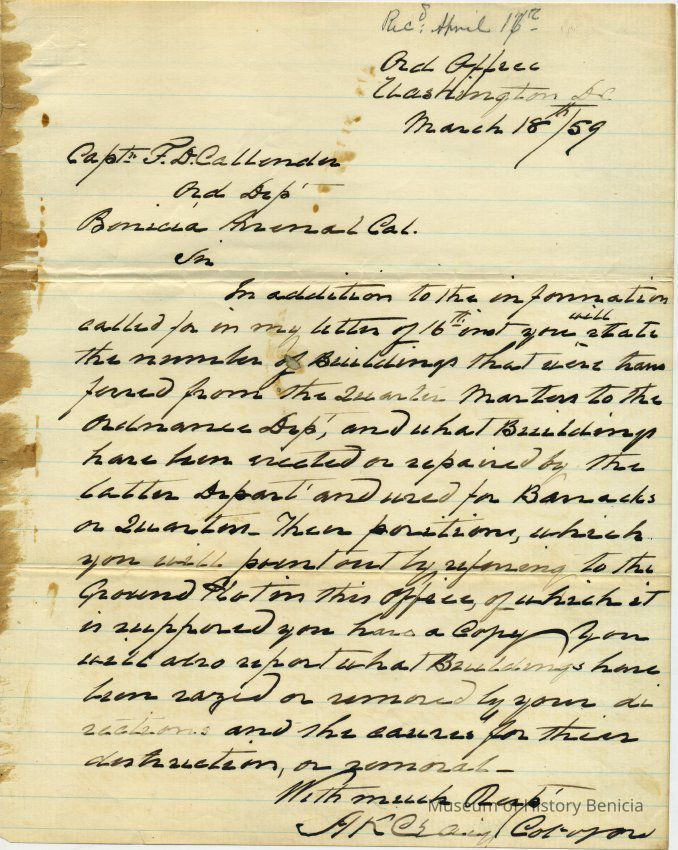 Recd. April 16th
Ord Office
Washington D.C.
March 18th/59
Captn F. D. Callender
Ord Dept
Benicia Arsenal Cal.
Sir
In addition to the information
called for in my letter of 16th inst you will state
the number of Buildings that were trans
ferred from the Quarter Masters to the
Ordnance Dept, and what Buildings
have been erected or repaired by the
latter Depart' and used for Barracks
or Quarters. Their positions, which
you will point out by refering to the
Ground Plot in this Office, of which it
is supposed you have a Copy You
will also report what Buildings have
been razed or removed by your di
rections and the causes for their
destruction, or removal.
With much Respt
H K Craig Col of Ord
Museum of History Benicia